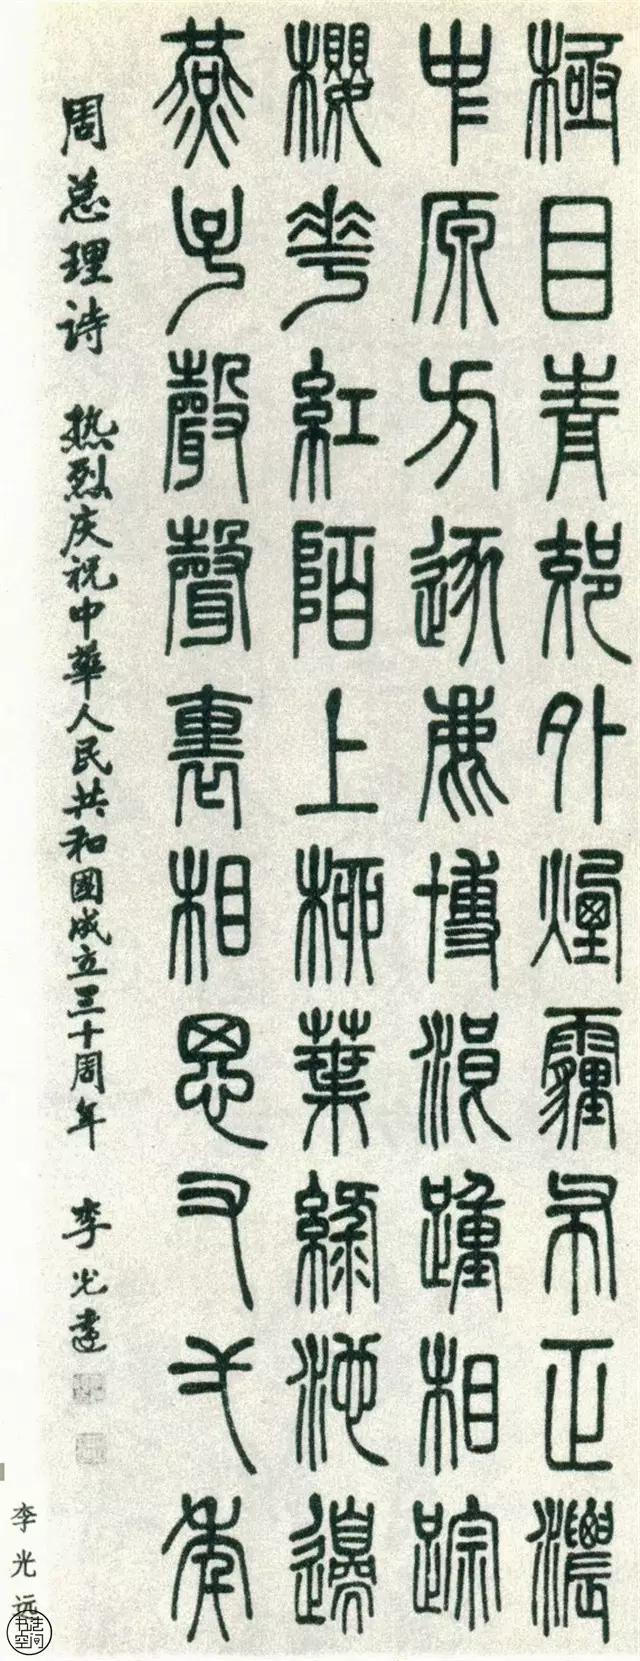 極目青郊外煙霾布正濃
中原方逐鹿博浪踵相踪
櫻花紅陌上柳葉綠池邊
燕子聲聲裏相思又一年
周总理诗 热烈庆祝中華人民共和國成立三十周年 李光遠
李光远
书法空间